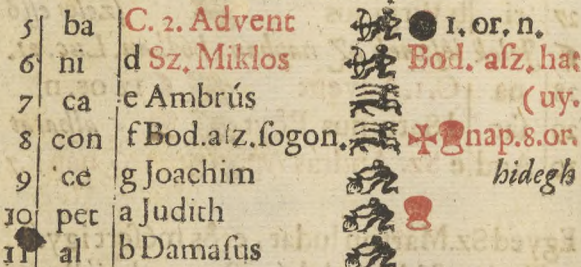 5 ba C. 2. Advent 1. or. n.
6 ni d Sz. Miklos Bod. aſz. hat
7 ca e Ambrús (uy.
8 con f Bod.aſz.ſogon. nap.8.or.
9 ce g Joachim hidegh
10 pet a Judith
11 al b Damaſus